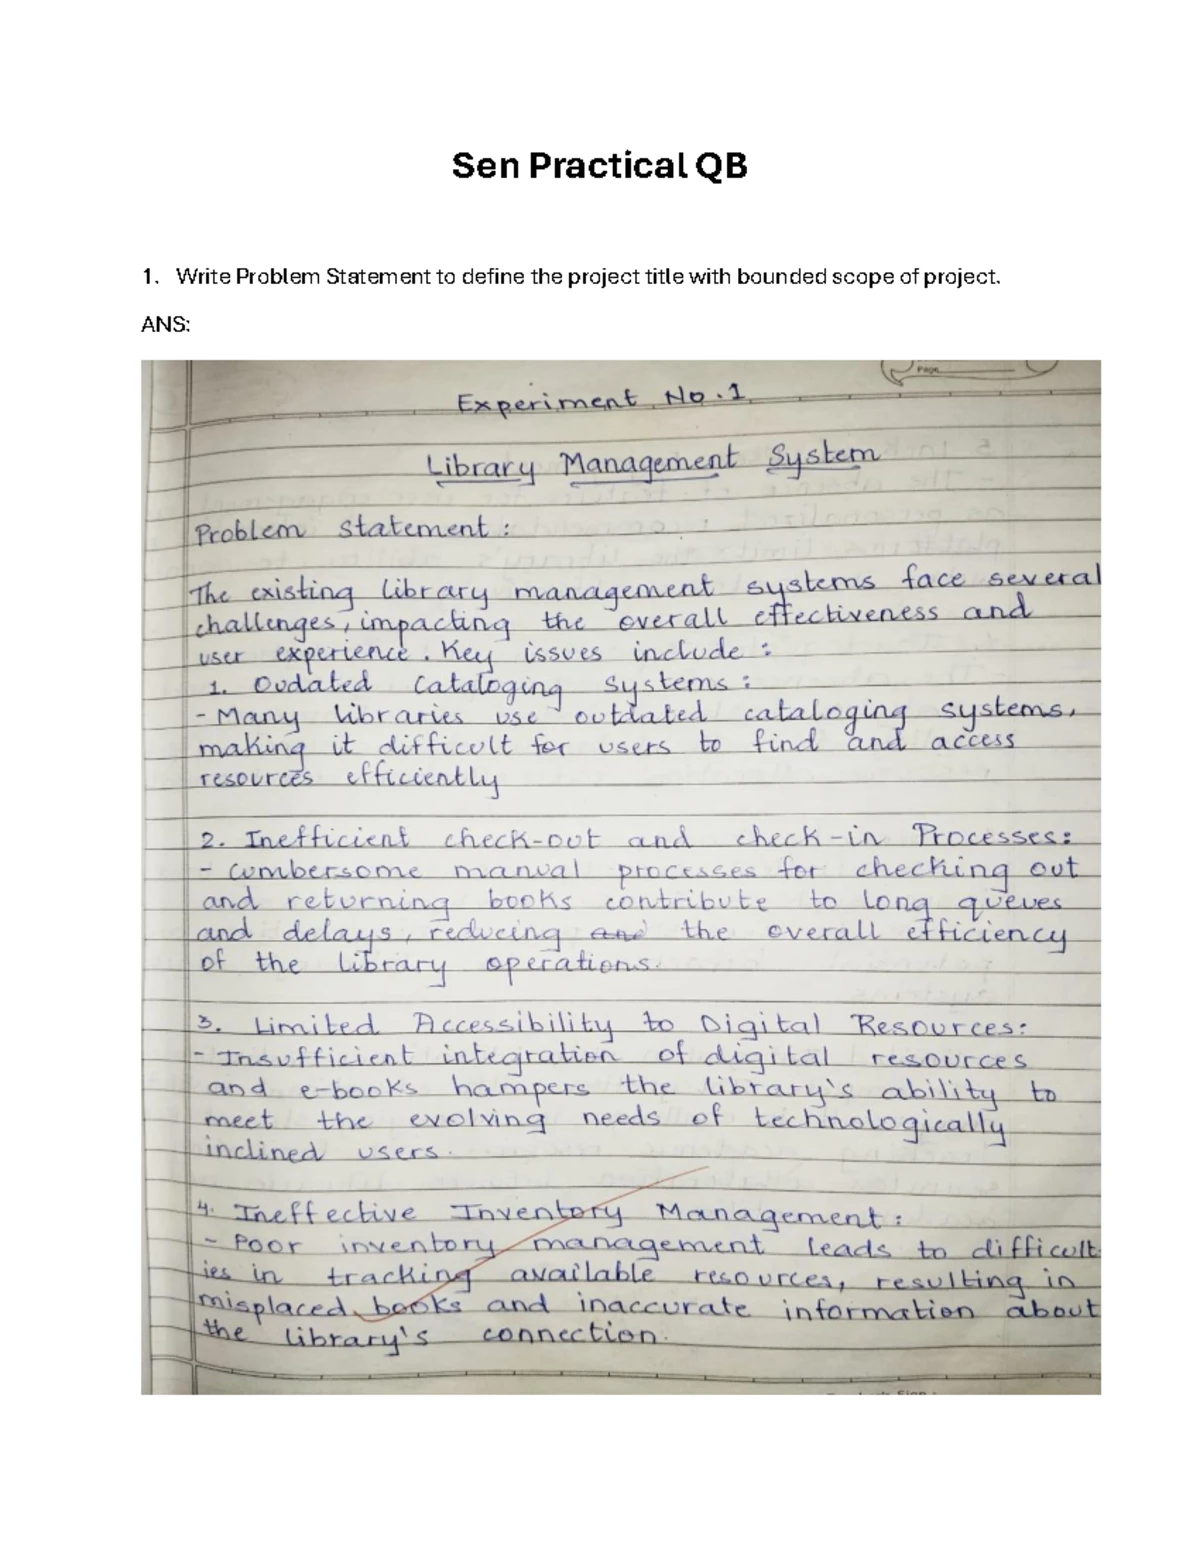 Sen Practical QB
1. Write Problem Statement to define the project title with bounded scope of project.
ANS:
Page
Experiment No.1
Library Management System
Problem statement :
The existing library management systems face several
challenges, impacting the overall effectiveness and
user experience. Key issues include :
1. Oudated Cataloging Systems :
- Many libraries use outdated cataloging systems,
making it difficult for users to find and access
resources efficiently
2. Inefficient check-out and check-in Processes:
- Cumbersome manual processes for checking out
and returning books contribute to long queues
and delays, reducing and the overall efficiency
of the library operations.
3. Limited Accessibility to Digital Resources:
- Insufficient integration of digital resources
and e-books hampers the library's ability to
meet the evolving needs of technologically
inclined users.
4. Ineffective Inventory Management :
- Poor inventory management leads to difficult
ies in tracking available resources, resulting in
misplaced books and inaccurate information about
the library's connection.